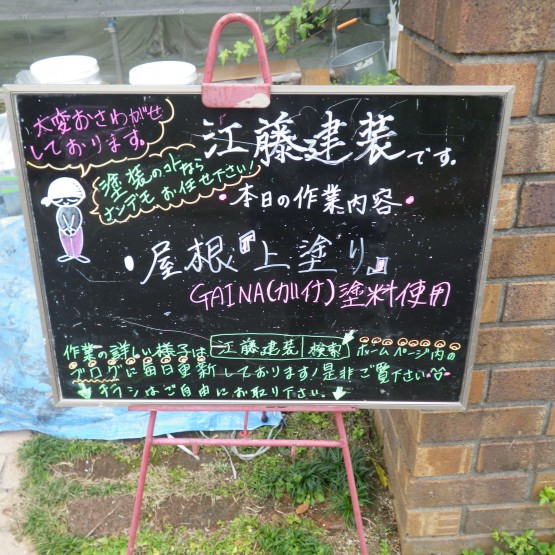 大変おさわがせ
しております。
江藤建装です。
塗装のコトなら
ナンデモお任せ下さい!
・本日の作業内容・
・屋根『上塗り』
GAINA(ガイナ)塗料使用
作業の詳しい様子は 江藤建装 検索 ホームページ内の
ブログに毎日更新しております!是非ご覧下さい
↓チラシはご自由にお取り下さい。↓